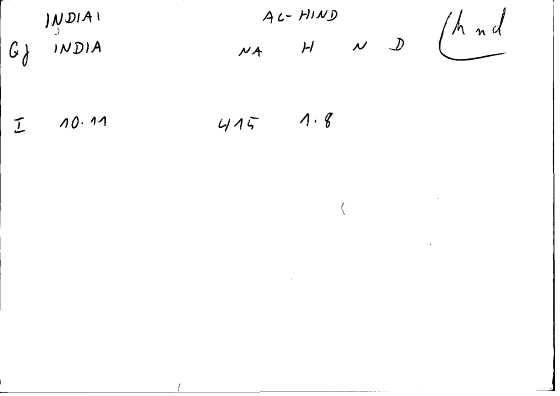 INDIAI AL-HIND
Gj INDIA NA H N D hnd
I 10.11 415 1.8